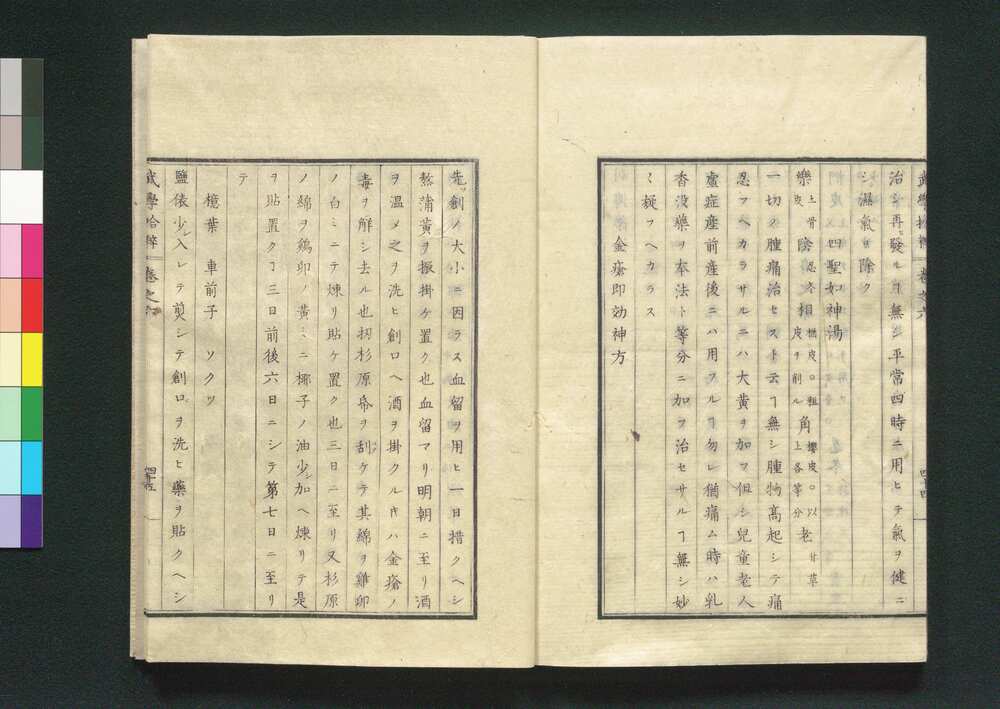 治シ再ヒ發ルヿ無シ平常四時ニ用ヒテ氣ヲ健ニ
シ濕氣ヲ除ク
四聖如神湯
樂 上骨皮 陰 忍冬 相 樝皮ロ粗皮ヲ削ル 角 攖皮ロ以上各等分 老 甘草
一切ノ腫痛治セスト云ヿ無シ腫物高起シテ痛
忍フヘカラサルニハ大黄ヲ加フ但シ兒童老人
虚症産前産後ニハ用フルヿ勿レ猶痛ム時ハ乳
香没藥ヲ本法ト等分ニ加フ治セサルヿ無シ妙
ミ疑フヘカラス
金瘡即効神方
武學拾粹 卷之六
先ツ創ノ大小ニ因ラス血留ヲ用ヒ一日措クヘシ
熬蒲黄ヲ振掛ケ置ク也血留マリ明朝ニ至リ酒
ヲ温メ之ヲ洗ヒ創ロヘ酒ヲ掛クル片ハ金瘡ノ
毒ヲ解シ去ル也扨杉原帋ヲ刮ケテ其綿ヲ雞卵
ノ白ミニテ煉リ貼ケ置ク也三日ニ至リ又杉原
ノ綿ヲ鶏卵ノ黄ミニ椰子ノ油少シ加ヘ煉リテ是
ヲ貼置クヿ三日前後六日ニシテ第七日ニ至リ
テ
檍葉 車前子 ソクツ
鹽俵少シ入レテ煎シテ創ロヲ洗ヒ藥ヲ貼クヘシ
武學拾粹 卷之六